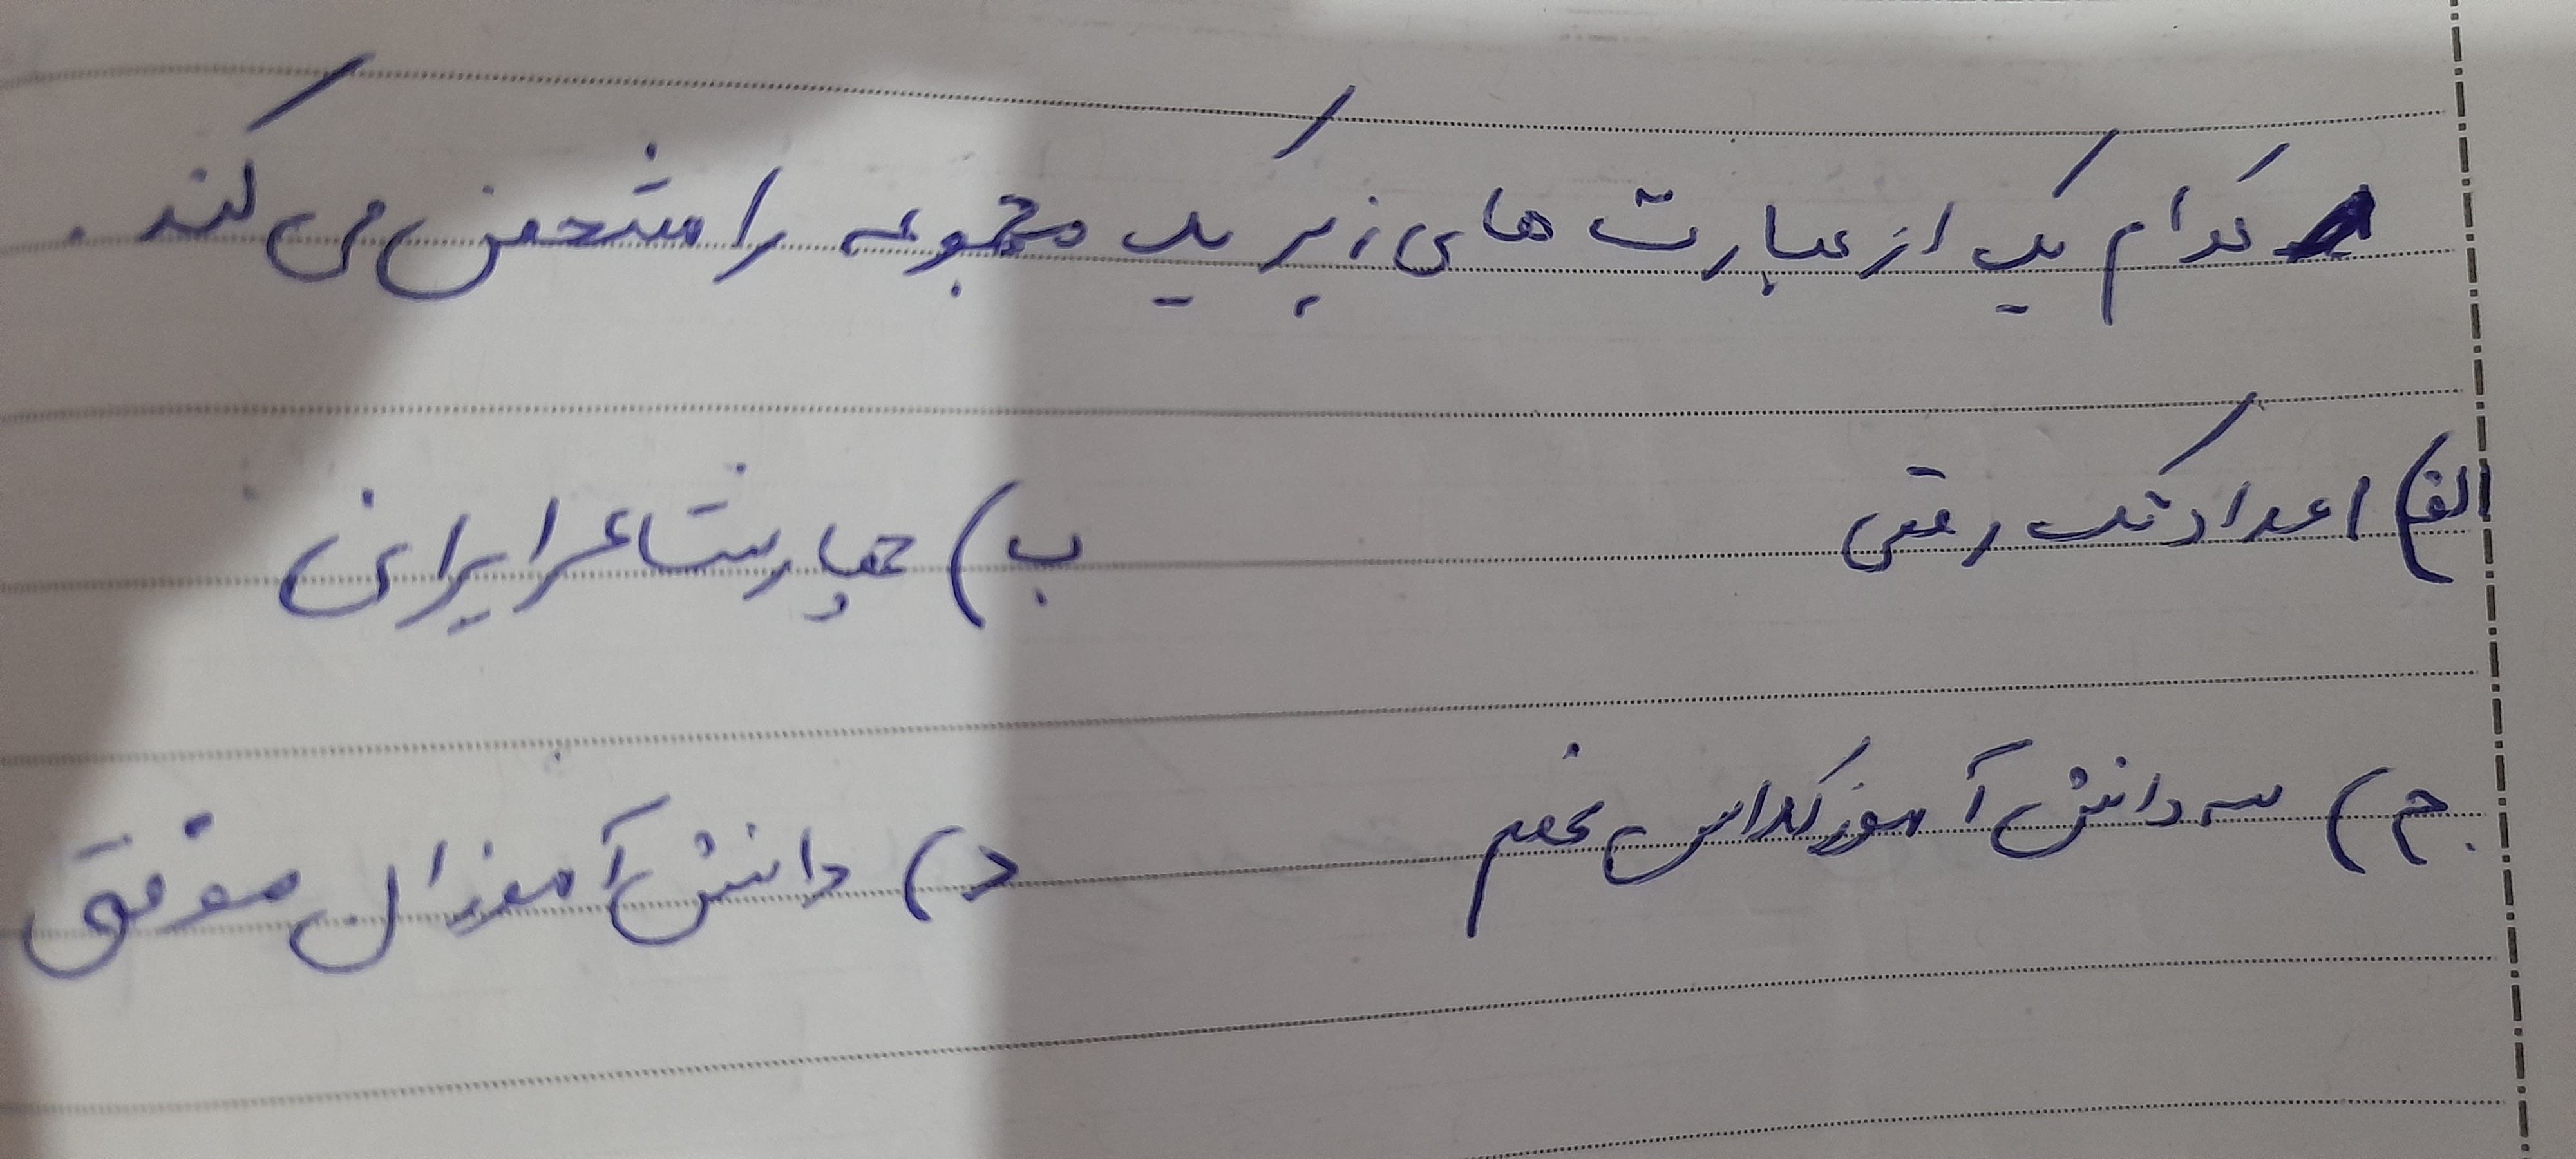 کدام یک از عبارت های زیر یک مجموعه را مشخص می کند .
الف) اعداد تک رقمی ب) چهار شاعر ایرانی
ج) سه دانش آموز کلاس نهم د) دانش آموزان موفق